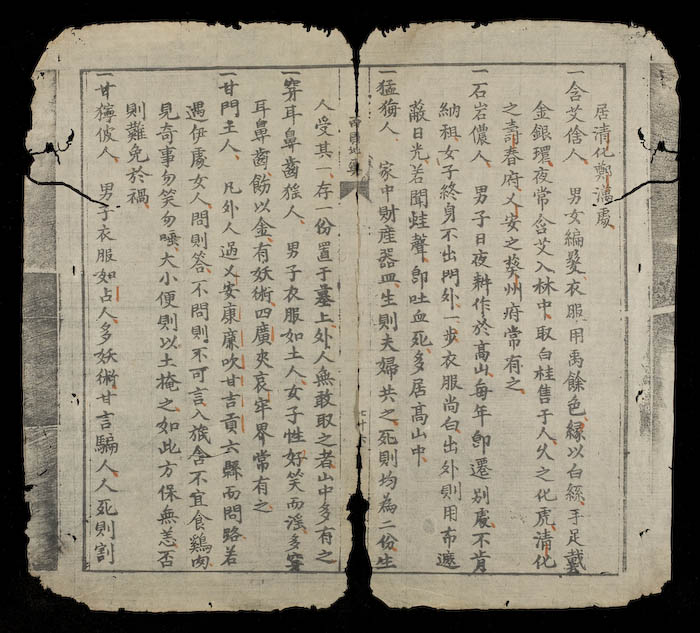 居清化鄭鴻處
一含艾傖人 男女編髮衣服用禹餘色緣以白絲手足戴
金銀環夜常含艾入林中取白桂售于人久之化虎清化
之壽春府乂安之葵州府常有之
一石岩儂人 男子日夜耕作於高山每年卽遷別處不肯
納租女子終身不出門外一步衣服尚白出外則用布遮
蔽日光若聞蛙聲卽吐血死多居高山中
一猛獱人 家中財産器皿生則夫婦共之死則均為二份生
人受其一存一份置于墓上外人無敢取之者山中多有之
一穿耳鼻齒猺人 男子衣服如土人女子性好笑而淫多穿
耳鼻齒飭以金有妖術四廣夾哀牢界常有之
一甘門主人 凡外人過乂安康廉吹甘吉貢六縣而問路若
遇伊處女人問則答不問則不可言入旅舍不宜食鷄肉
見奇事勿笑勿唾大小便則以土掩之如此方保無恙否
則難免於禍
一甘獰彼人 男子衣服如占人多妖術甘言騙人人死則割